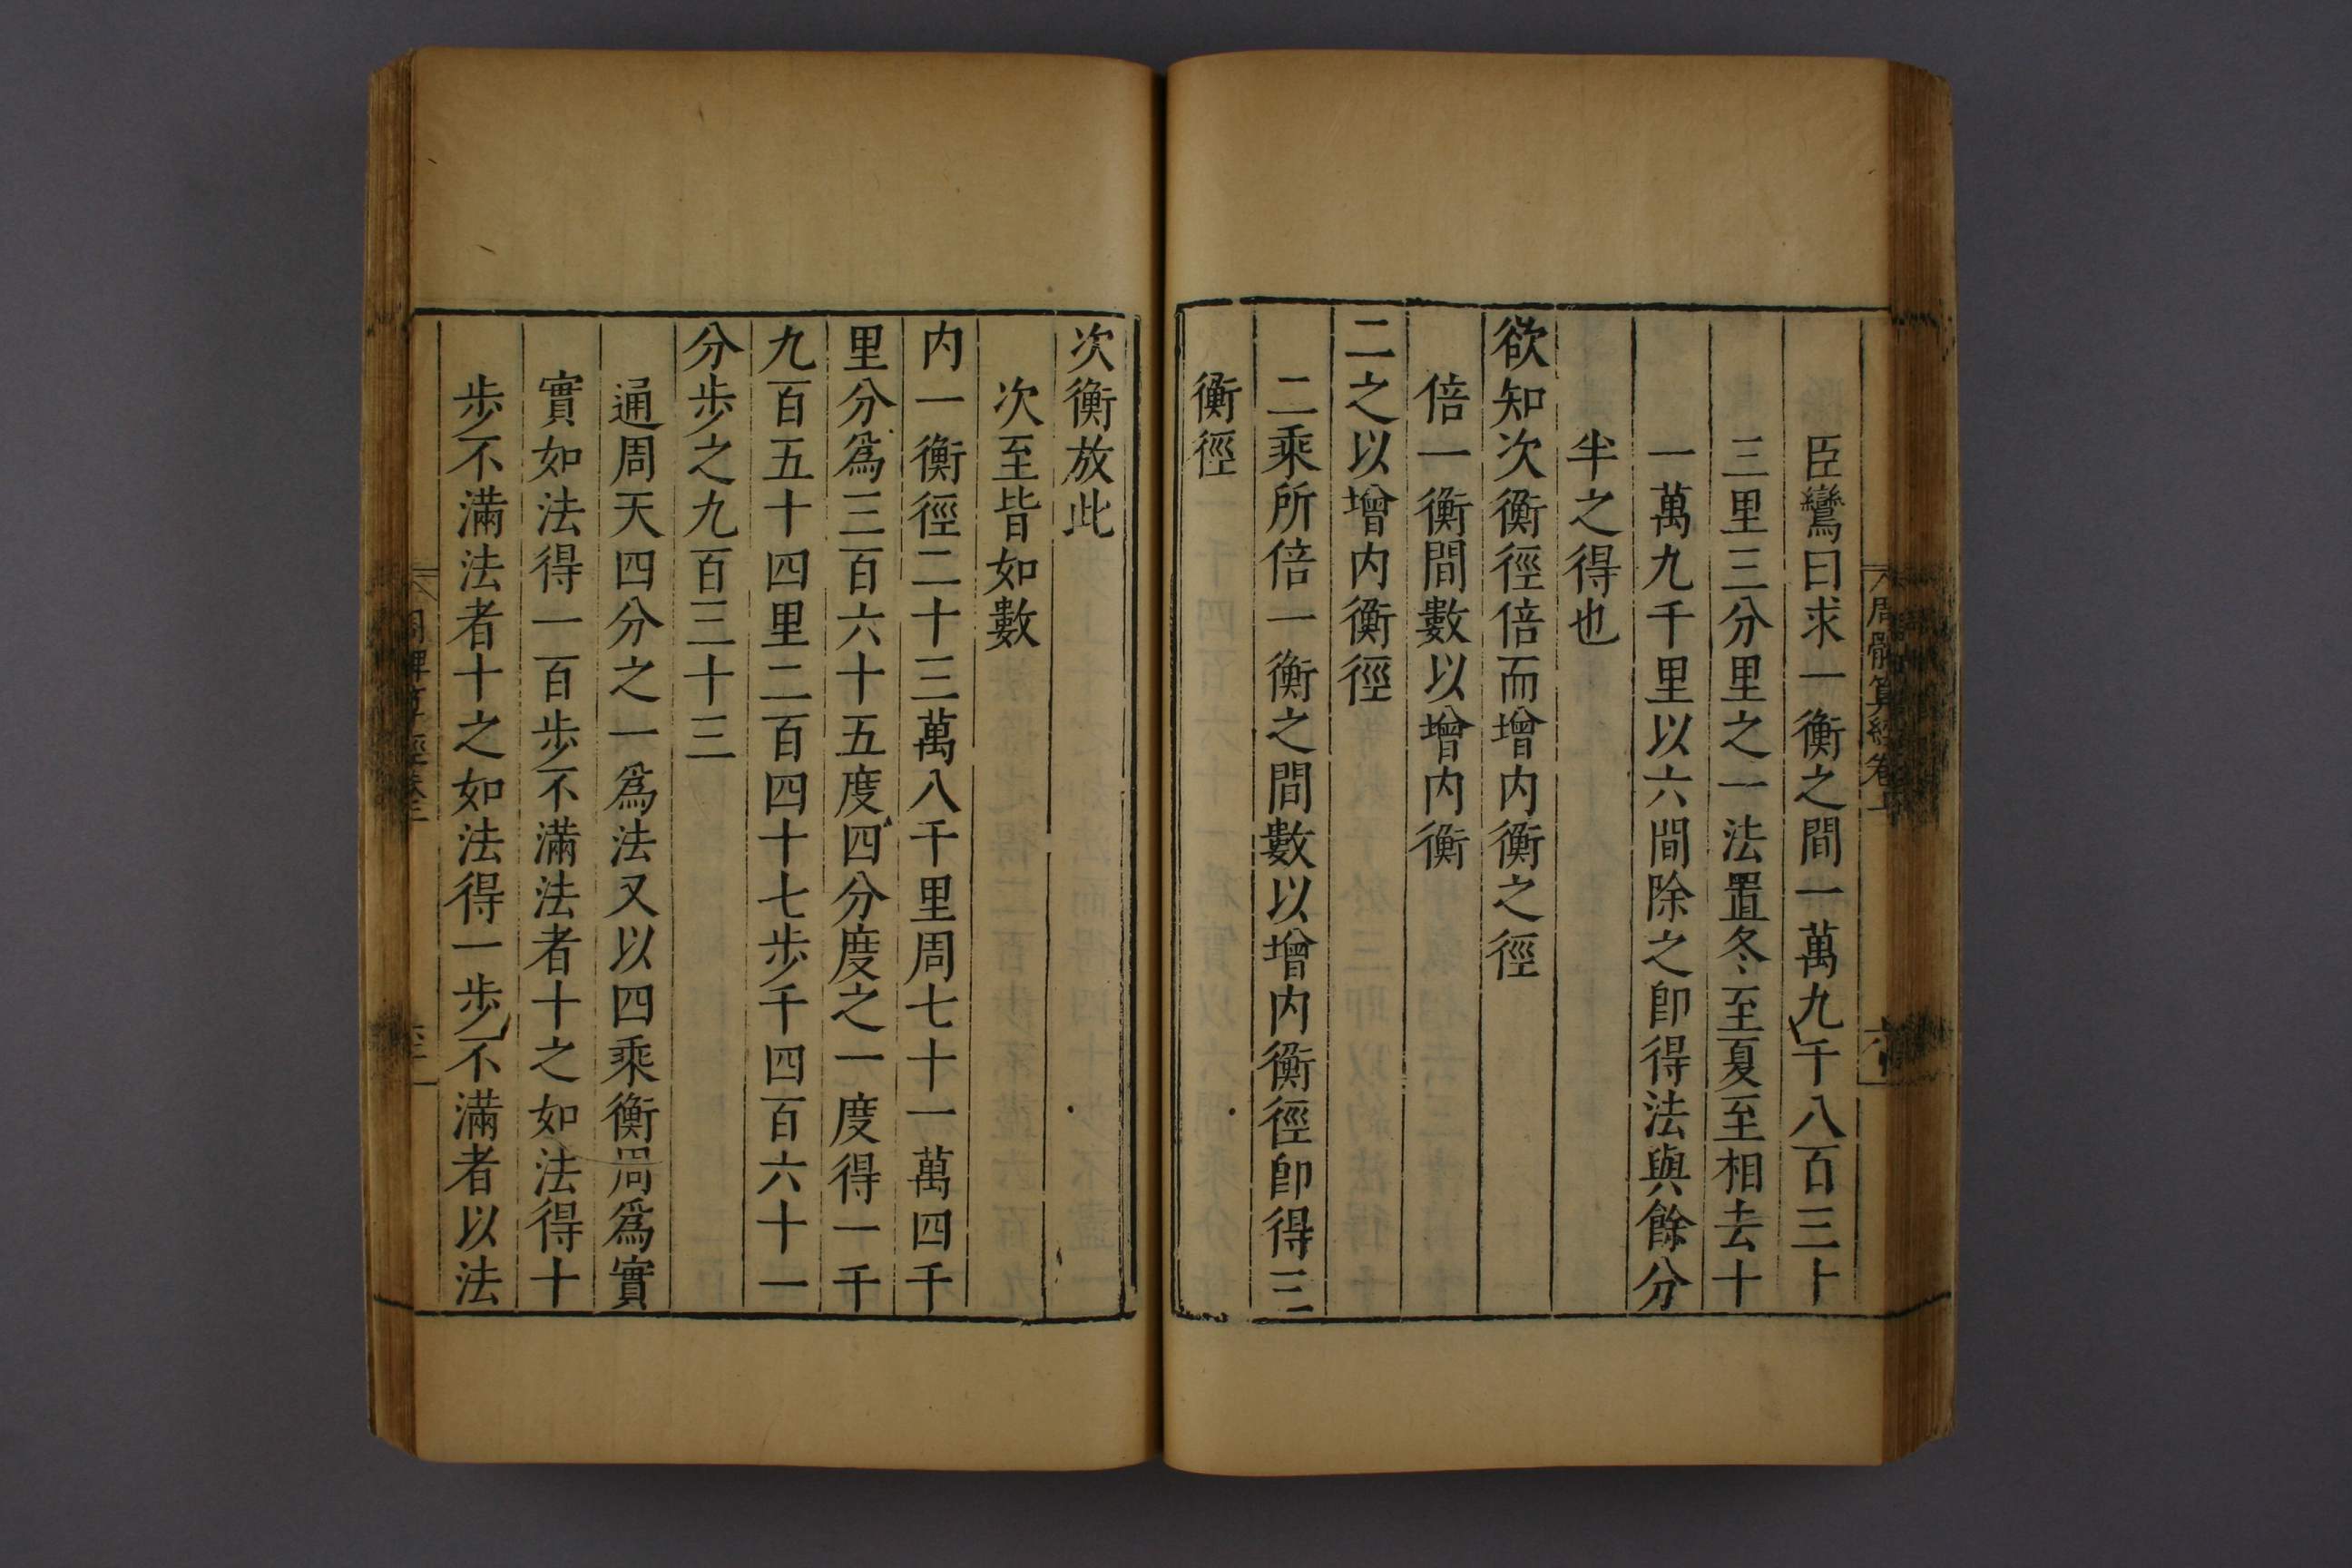 周髀算經卷上
臣鸞曰求一衡之間一萬九千八百三十
三里三分里之一法置冬至夏至相去十
一萬九千里以六間除之卽得法與餘分
半之得也
欲知次衡徑倍而增内衡之徑
倍一衡間數以增内衡
二之以增内衡徑
二乘所倍一衡之間數以增内衡徑卽得三
衡徑
次衡放此
次至皆如數
内一衡徑二十三萬八千里周七十一萬四千
里分爲三百六十五度四分度之一度得一千
九百五十四里二百四十七步千四百六十一
分步之九百三十三
通周天四分之一爲法又以四乘衡周爲實
實如法得一百步不滿法者十之如法得十
步不滿法者十之如法得一步不滿者以法